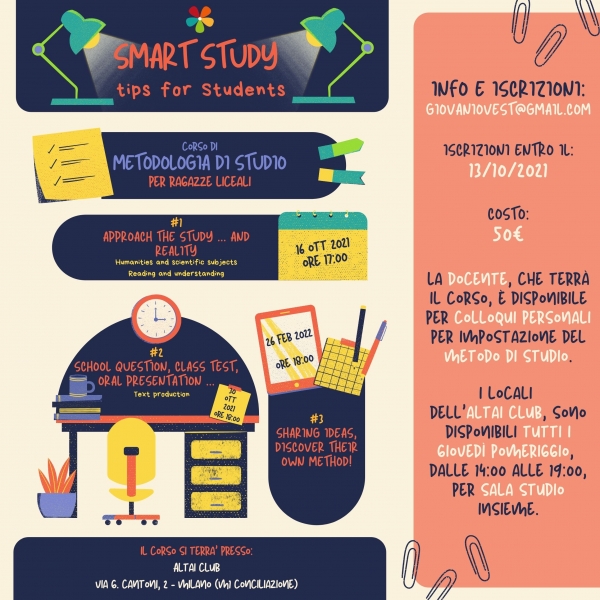 SMART STUDY
tips for Students
CORSO DI
METODOLOGIA DI STUDIO
PER RAGAZZE LICEALI
#1
APPROACH THE STUDY ... AND
REALITY
Humanities and scientific subjects
Reading and understanding
16 OTT 2021
ORE 17:00
#2
SCHOOL QUESTION, CLASS TEST,
ORAL PRESENTATION ...
Text production
30
OTT
2021
ORE 18:00
26 FEB 2022
ORE 18:00
#3
SHARING IDEAS,
DISCOVER THEIR
OWN METHOD!
IL CORSO SI TERRA' PRESSO:
ALTAI CLUB
VIA G. CANTONI, 2 - MILANO (M1 CONCILIAZIONE)
INFO E ISCRIZIONI:
GIOVANIOVEST@GMAIL.COM
ISCRIZIONI ENTRO IL:
13/10/2021
COSTO:
50€
LA DOCENTE, CHE TERRÀ
IL CORSO, È DISPONIBILE
PER COLLOQUI PERSONALI
PER IMPOSTAZIONE DEL
METODO DI STUDIO.
I LOCALI
DELL'ALTAI CLUB, SONO
DISPONIBILI TUTTI I
GIOVEDÌ POMERIGGIO,
DALLE 14:00 ALLE 19:00,
PER SALA STUDIO
INSIEME.